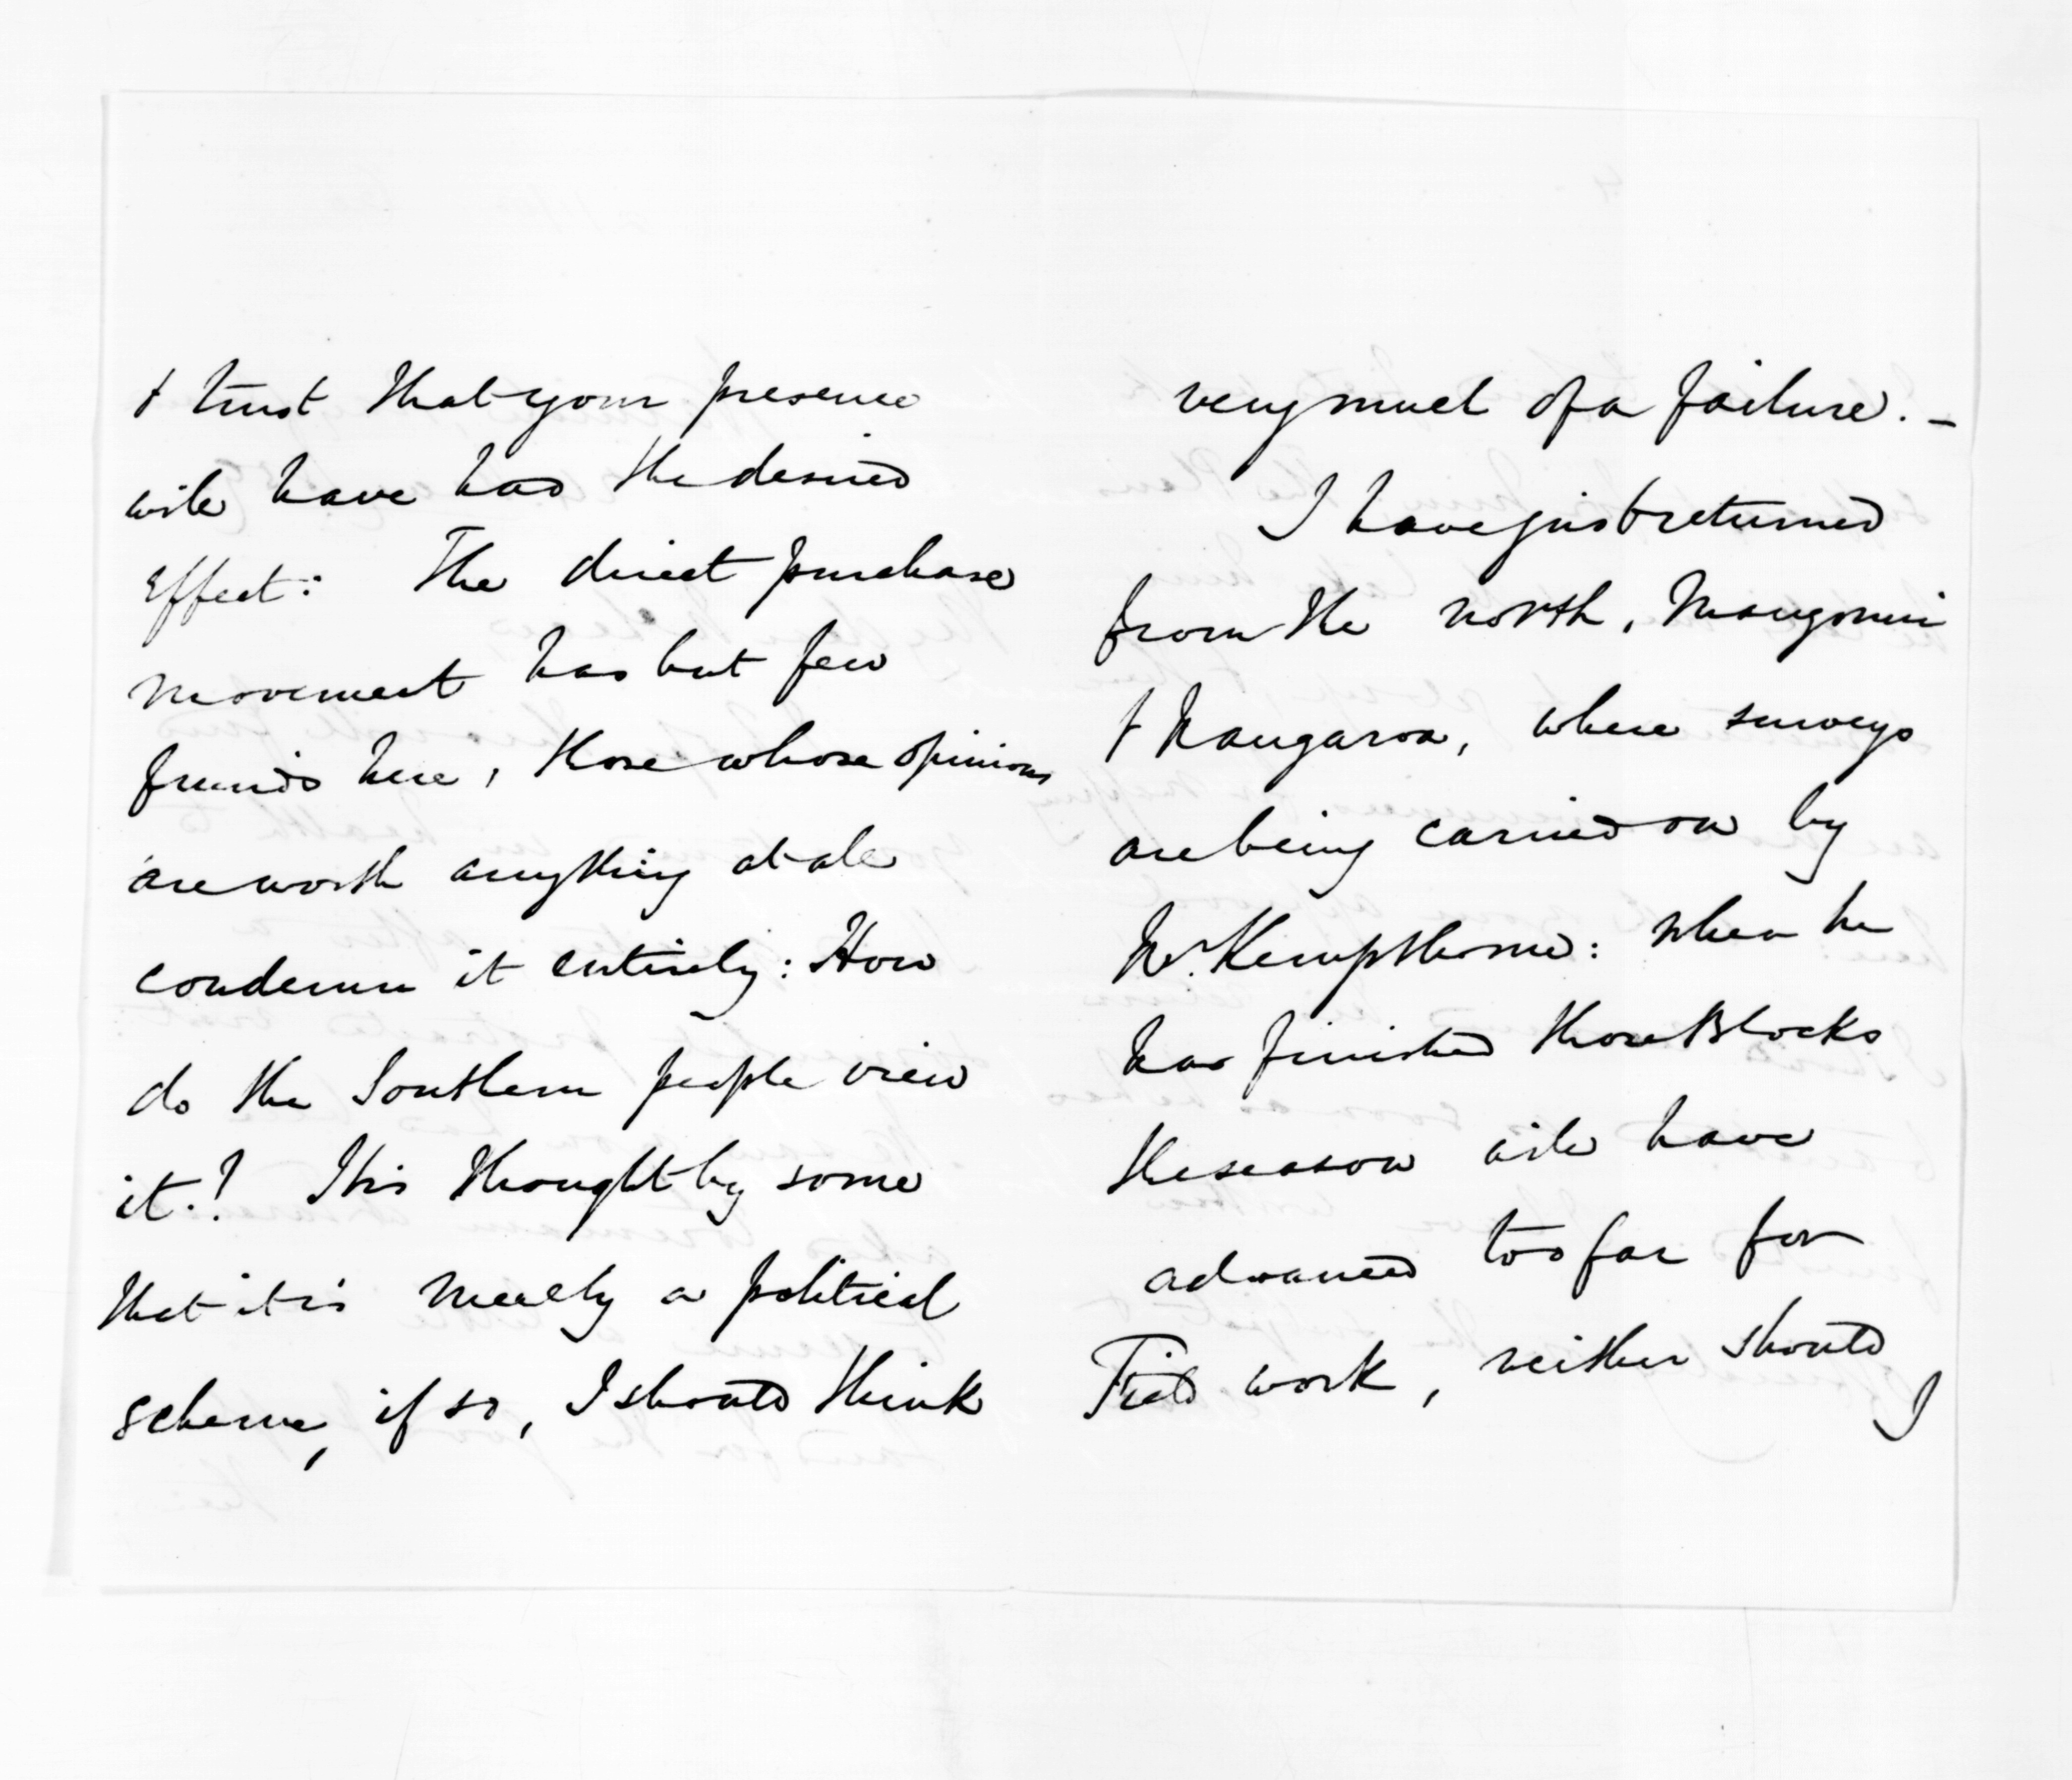 & trust that your presence
will have had the desired
Effect: The direct purchase
movement has but few
friends here, those whose opinions
are worth anything at all
condemn it entirely: How
do the Southern people view
it.? It is thought by some
that it is merely a political
scheme, if so, I should think
very much of a failure. -
I have just returned
from the north, Mangonui
& Wangaroa, where surveys
are being carried on by
Mr. Kempthorne: when he
has finished those Blocks
the season will have
advanced too far for
Field work, neither should
I